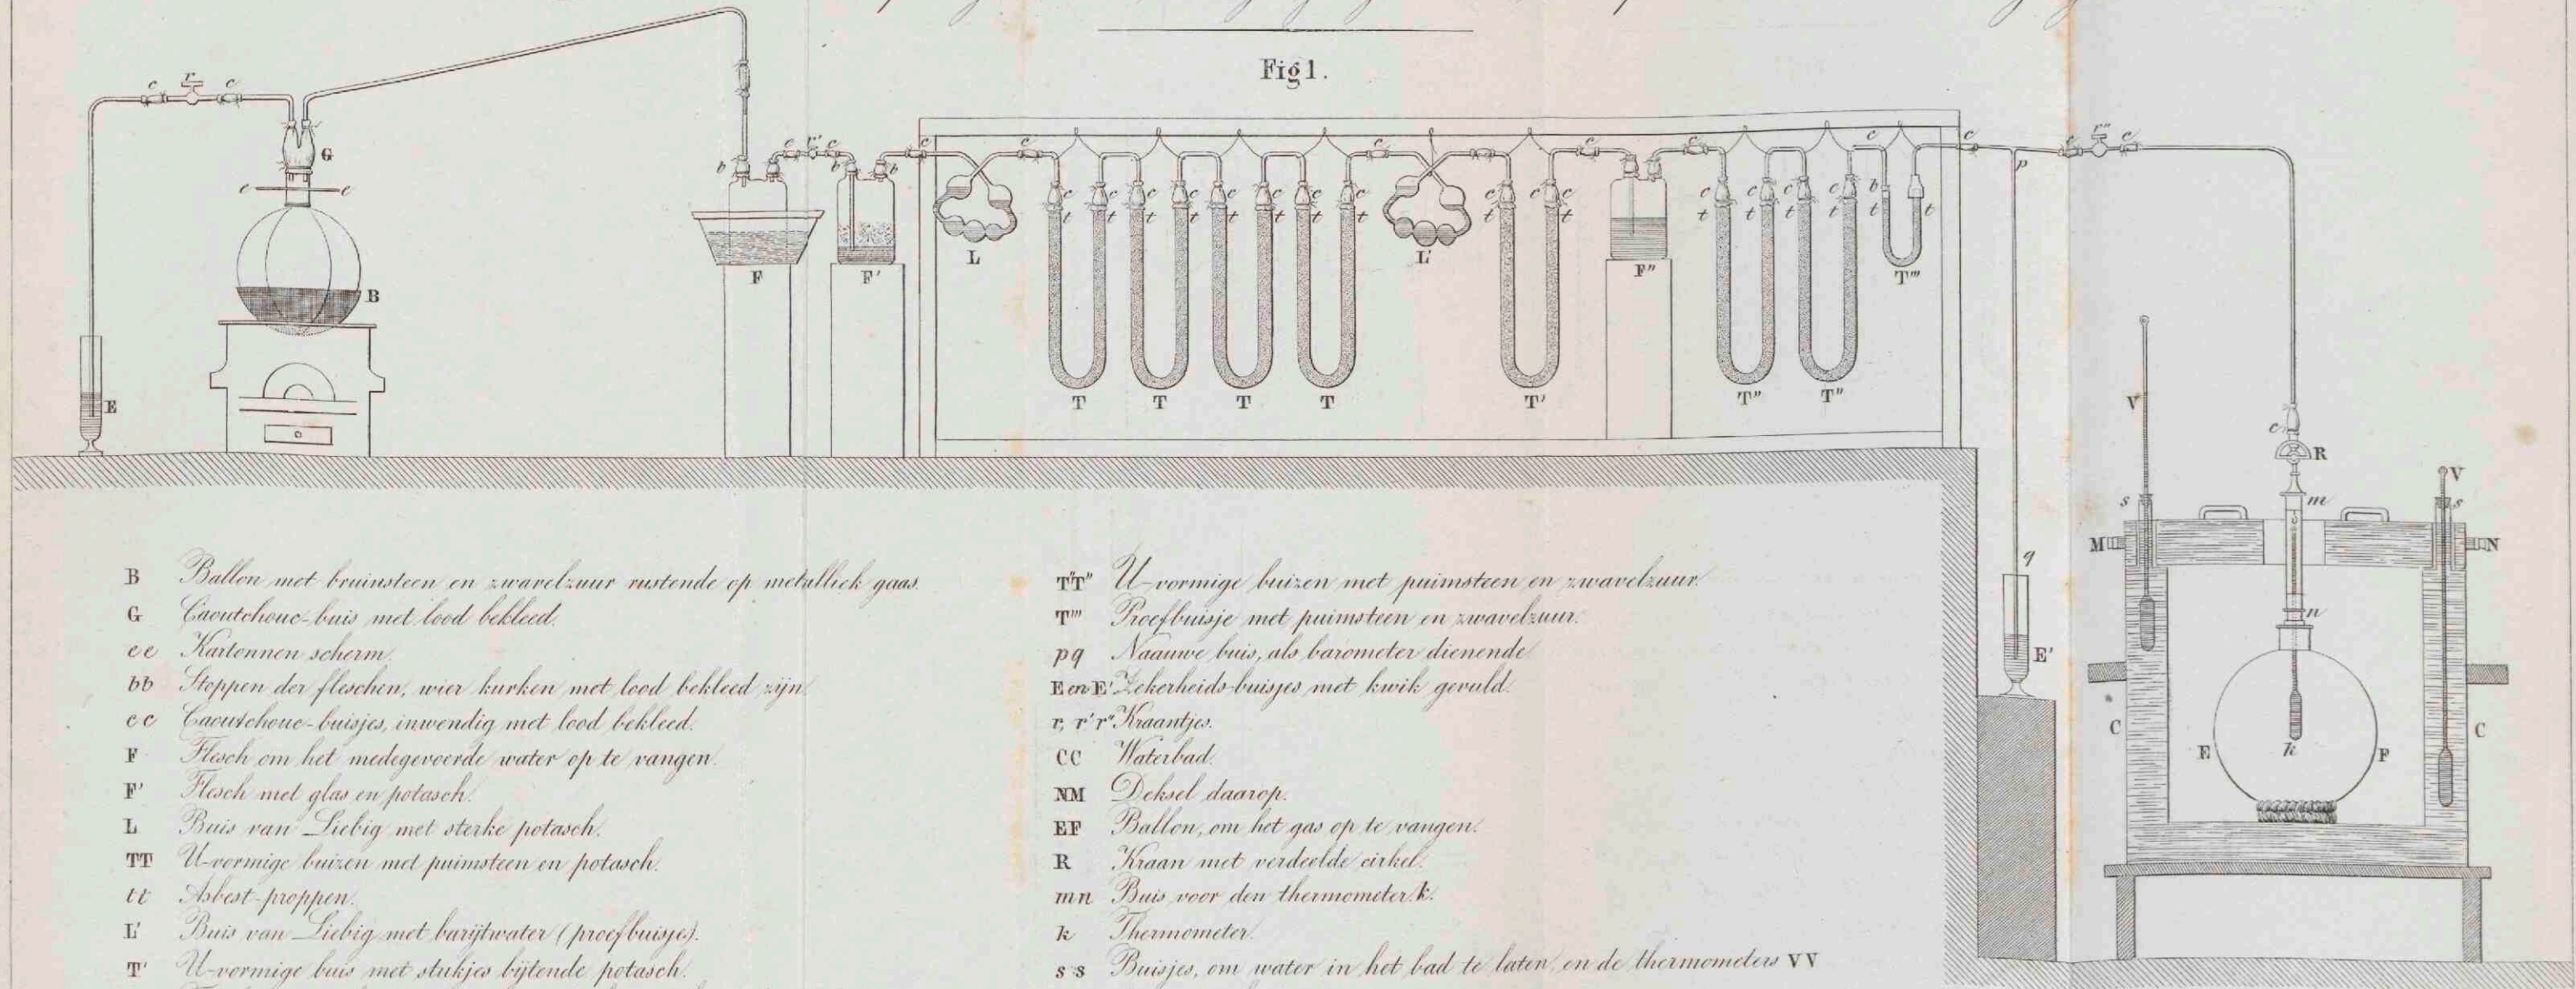 Fig 1.
B Ballon met bruinsteen en zwavelzuur rustende op metalliek gaas.
G Caoutchouc-buis met lood bekleed.
ee Kartonnen scherm.
bb Stoppen der flesschen, wier kurken met lood bekleed zijn.
cc Caoutchouc-buisjes, inwendig met lood bekleed.
F Flesch om het medegevoerde water op te vangen.
F' Flesch met glas en potasch.
L Buis van Liebig met sterke potasch.
TT U-vormige buizen met puimsteen en potasch.
tt Asbest-proppen.
L' Buis van Liebig met barijtwater (proefbuisje).
T' U-vormige buis met stukjes bijtende potasch.
T"T" U-vormige buizen met puimsteen en zwavelzuur.
T''' Proefbuisje met puimsteen en zwavelzuur.
pq Naauwe buis, als barometer dienende
E en E' Zekerheids-buisjes met kwik gevuld.
r, r' r" Kraantjes.
CC Waterbad.
NM Deksel daarop.
EF Ballon, om het gas op te vangen.
R Kraan met verdeelde cirkel.
mn Buis voor den thermometer k.
k Thermometer.
s s Buisjes, om water in het bad te laten en de thermometers VV